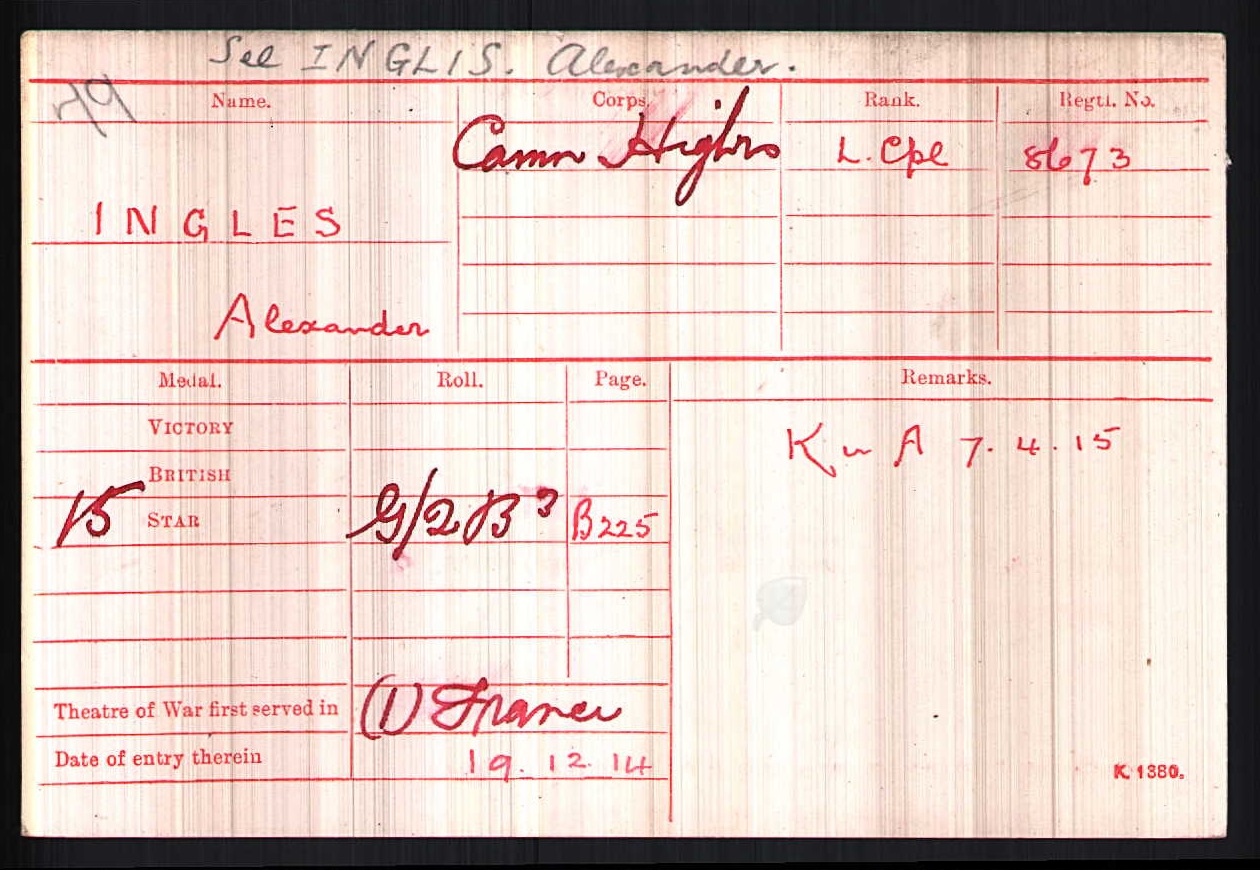 See INGLIS. Alexander.
79
Name. Corps. Rank. Regtl. No.
Camn Highrs L. Cpl 8673
INGLES
Alexander
Medal. Roll. Page. Remarks.
VICTORY
K in A 7.4.15
BRITISH
15 STAR G/2 B3 B225
Theatre of War first served in (1) France
Date of entry therein 19.12.14
K. 1380.